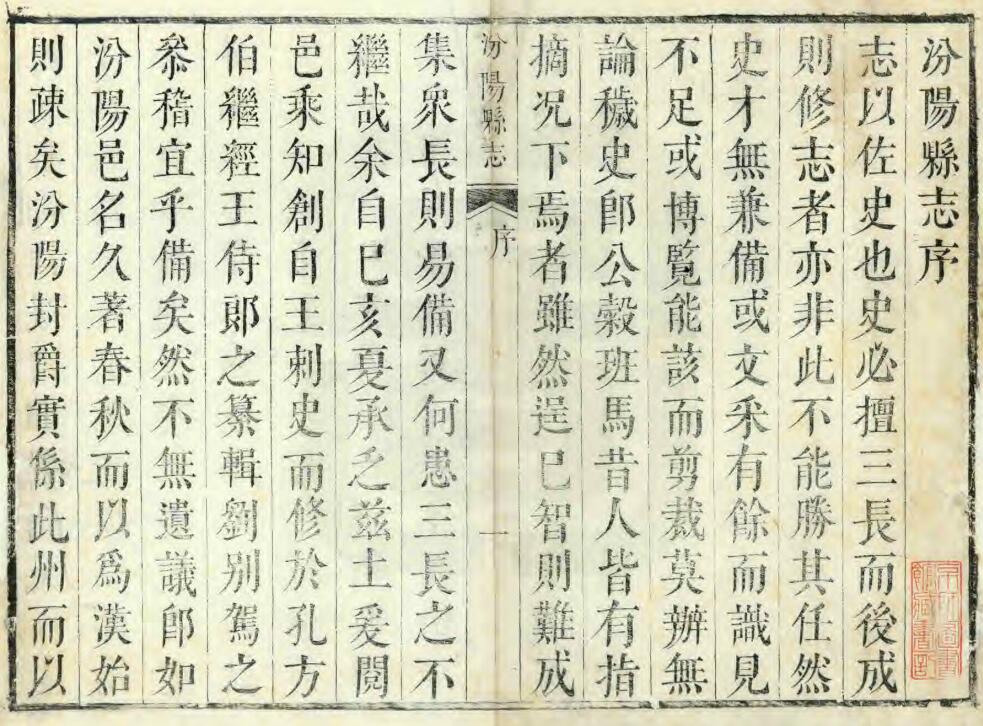 汾陽縣志序
志以佐史也史必擅三長而後成
則修志者亦非此不能勝其任然
史才無兼備或文采有餘而識見
不足或博覧能該而剪裁莫辦無
論穢史卽公穀班馬昔人皆有指
摘况下焉者雖然逞巳智則難成
汾陽縣志 序 一
集衆長則易備又何患三長之不
繼哉余自巳亥夏承乏兹土爰閱
邑乘知創自王刺史而修於孔方
伯繼經王侍郎之纂輯劉别駕之
叅稽宜乎備矣然不無遺議卽如
汾陽邑名久著春秋而以爲漢始
則疎矣汾陽封爵實係此州而以